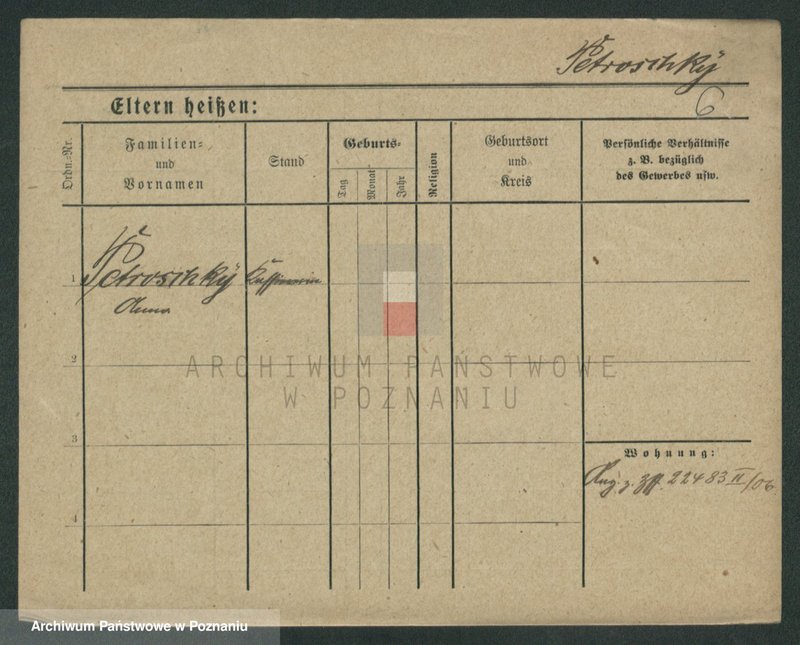 Petroschky
6
Eltern heißen:
Ordn.-Nr.
Familien-
und
Vornamen
Stand
Geburts-
Tag
Monat
Jahr
Religion
Geburtsort
und
Kreis
Persönliche Verhältnisse
z. B. bezüglich
des Gewerbes usw.
1
Petroschky
Anna
2
ARCHIWUM PAŃSTWOWE
W POZNANIU
3
Wohnung:
22483 II/06
4
Archiwum Państwowe w Poznaniu